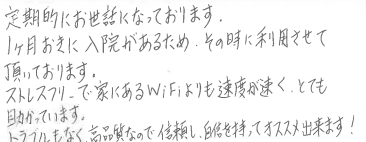 定期的にお世話になっております.
1ヶ月おきに入院があるため、その時に利用させて
頂いております。
ストレスフリーで家にあるWiFiよりも速度が速く、とても
助かっています。
トラブルもなく、高品質なので信頼し、自信を持ってオススメ出来ます!